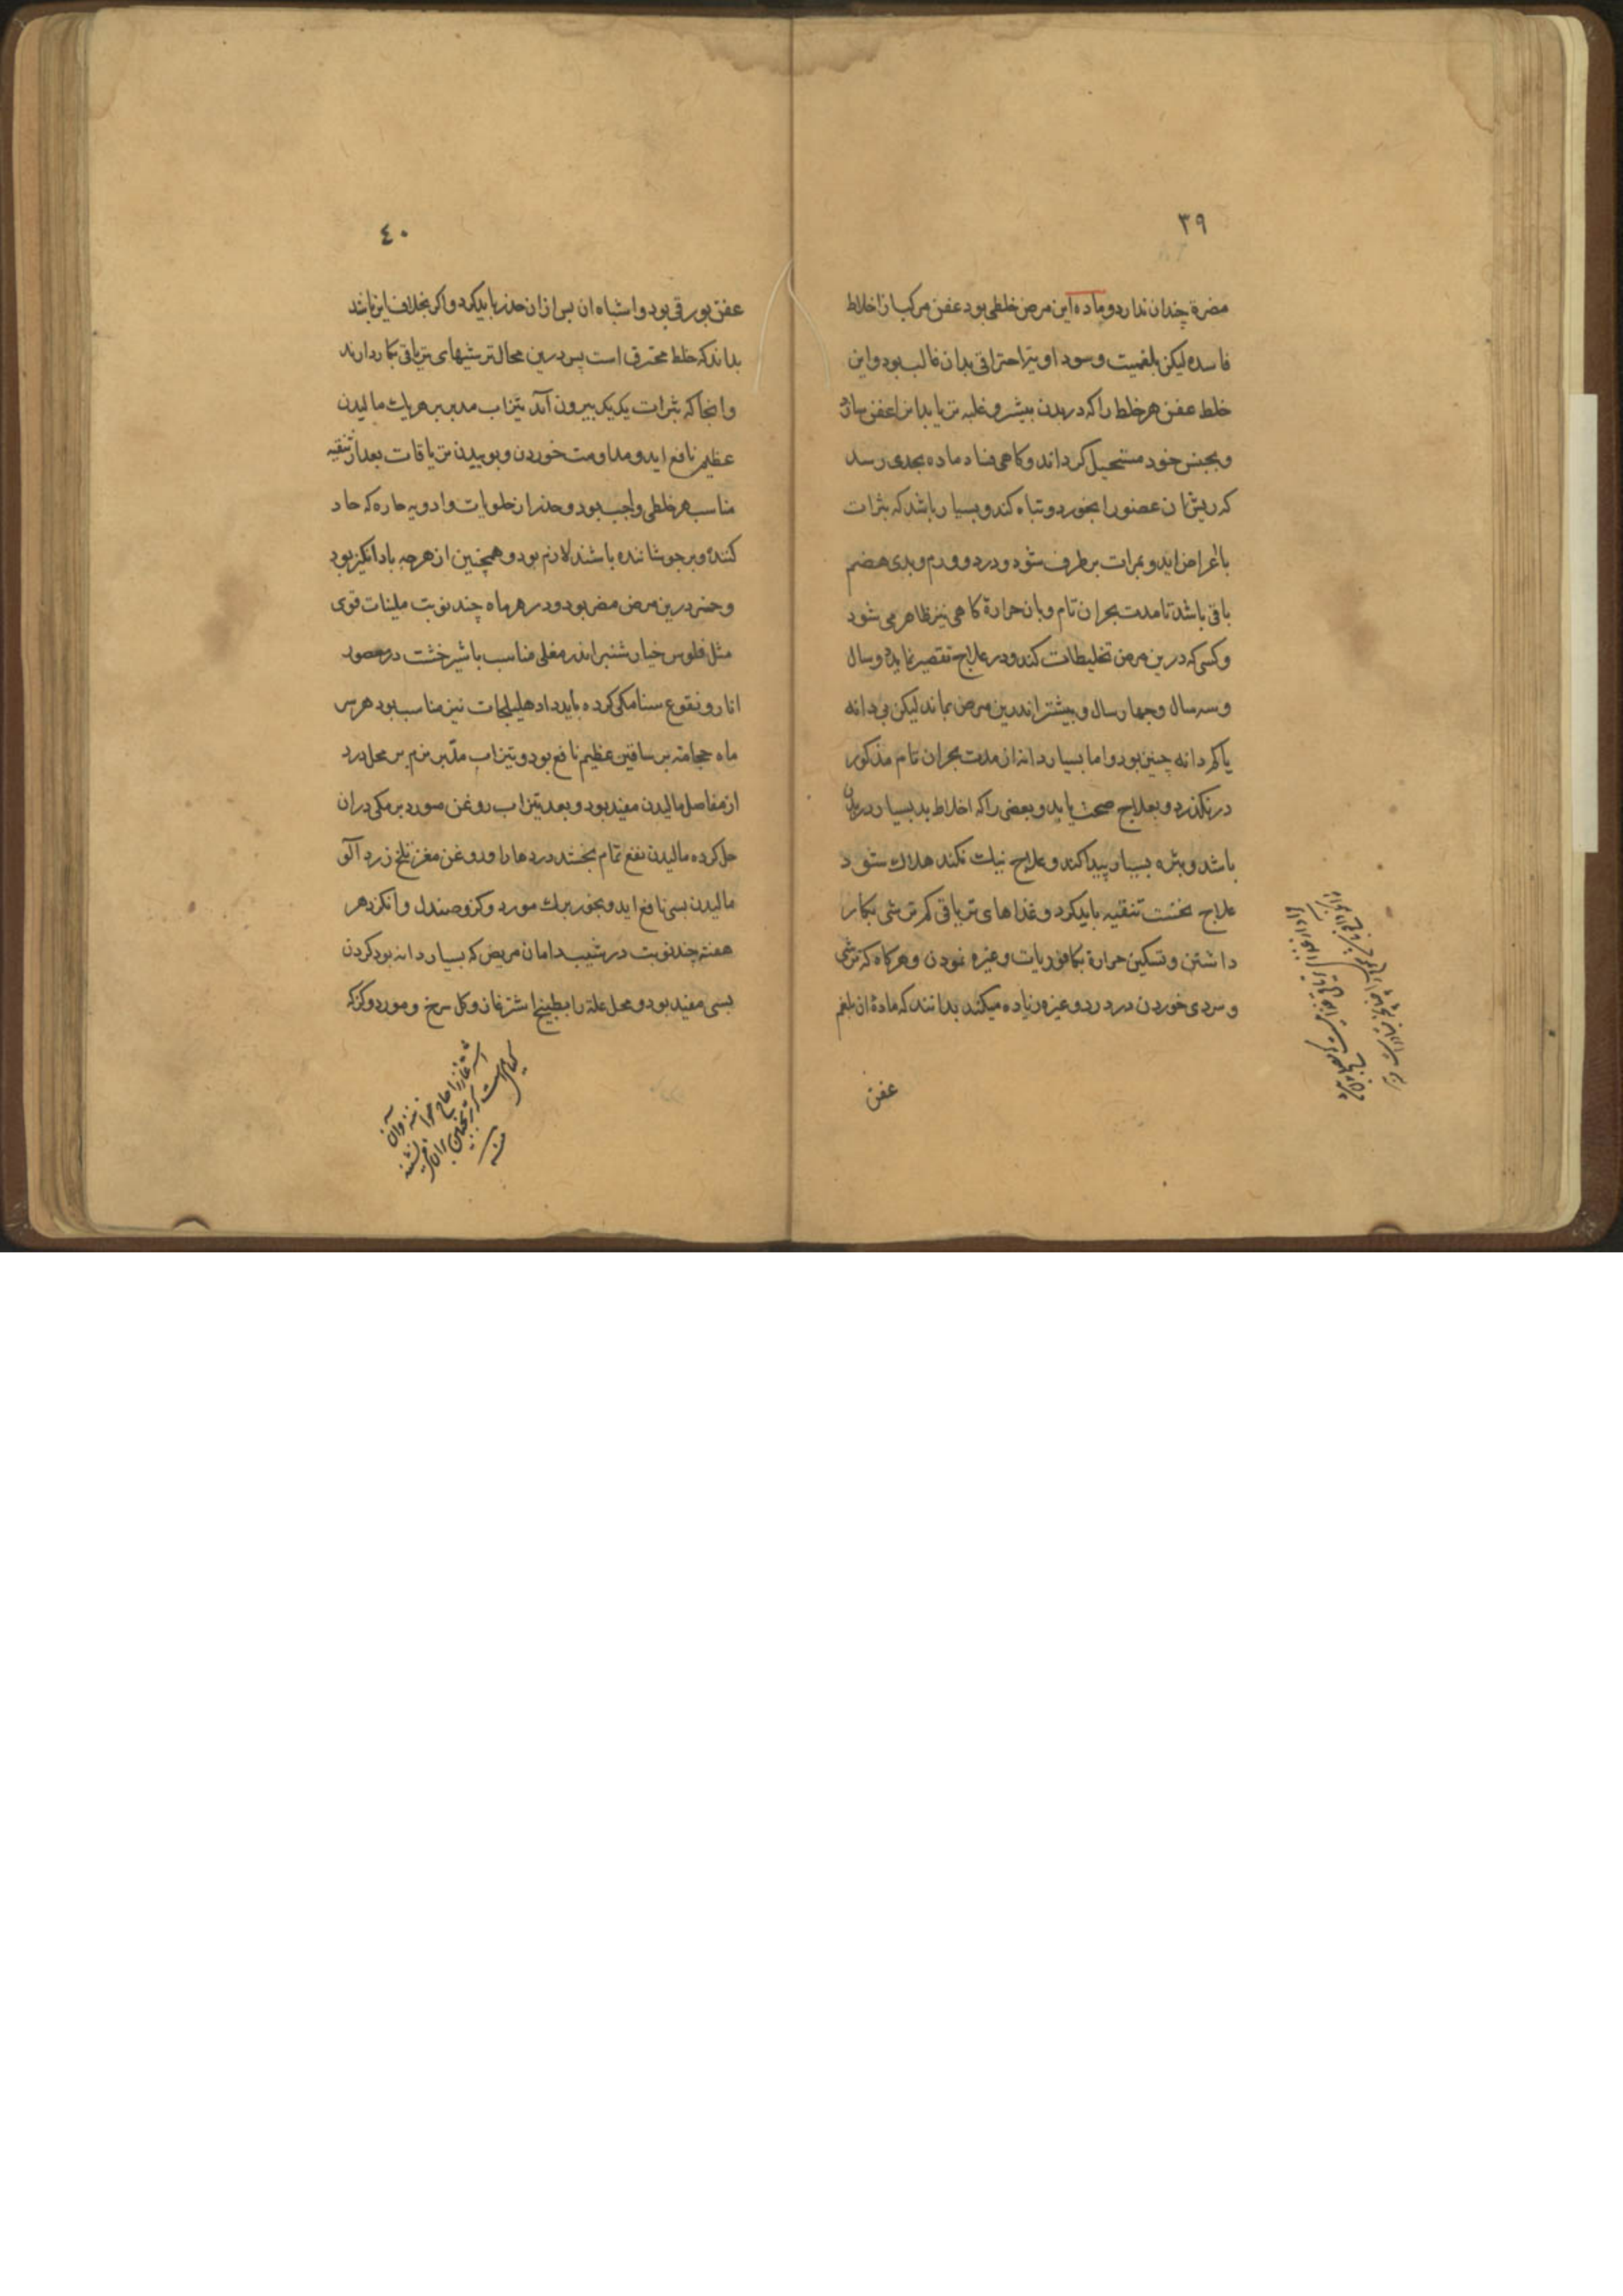 ۳۹
مضرة چندان ندارد و ماده این مرض خلطی بود عفن مرکب از اخلاط
فاسده لیکن بلغمیت و سوداویة احتراقی بدان غالب بود و این
خلط عفن هر خلط را که در بدن بیشتر و غلبه تر یابد انرا عفن سازد
و بجنس خود مستحیل کرداند و کاهی فساد ماده بحدی رسد
که ریش ان عضو را بخورد و تباه کند و بسیار باشد که بثرات
با اعراض اید و بمرات برطرف شود و درد و ورم و بدی هضم
باقی باشد تا مدت بحران تام و بان حرارة کاهی نیز ظاهر می شود
و کسی که درین مرض تخلیطات کند و در علاج تقصیر نماید دو سال
و سه سال و چهار سال و بیشتر اندرین مرض بماند لیکن بی دانه
یا کم دانه چنین بود و اما بسیار دانه از مدت بحران تام مذکور
در نکذرد و بعلاج صحت یابد و بعضی را که اخلاط بد بسیار در بدن
باشد و بثره بسیار پیدا کند و علاج نیک نکند هلاک شود
علاج نخست تنقیه باید کرد و غذاهای تریاقی کم ترشی بکار
داشتن و تسکین حرارة بکافوریات و غیره نمودن و هرکاه که ترشی
و سردی خوردن درد رد و غیره زیاده میکند بدانند که مادهٔ ان بلغم
عفن
۴۰
عفن بورقی بود و اشباه ان پس ازان حذر باید کرد و اکر بخلاف این باشد
بداند که خلط محترق است پس درین محال ترشیهای تریاقی بکار دارند
و انجا که بثرات یک یک بیرون آید تیزاب مدبر بر هر یک مالیدن
عظیم نافع اید و مداومت خوردن و بوییدن تریاقات بعد از تنقیه
مناسب هر خلطی واجب بود و حذر از حلویات و ادویه حاره که حاد
کننده و برجوشاننده باشند لازم بود و همچنین از هرچه بادانکیز بود
و درین مرض مضر بود و در هر ماه چند نوبت ملینات قوی
مثل فلوس خیار شنبر اندر مغلی مناسب با شیرخشت در معصور
انار و نقوع سنا مکی کرده باید داد هلیلجات نیز مناسب بود هر سر
ماه حجامة بر ساقین عظیم نافع بود و تیزاب مدبر نرم بر محل درد
از مفاصل مالیدن مفید بود و بعد تیزاب روغن مورد برمکی دران
حل کرده مالیدن نفع تمام بخشد دردها را و روغن مغز تلخ زرد آلو
مالیدن بسی نافع اید و بخور برک مورد و کز و صندل و انکزد هر
هفته چند نوبت در شیب دامان مریض که بسیار دانه بود کردن
بسی مفید بود و محل علة را بطبیخ اشترغاز و کل سرخ و مورد و کز که